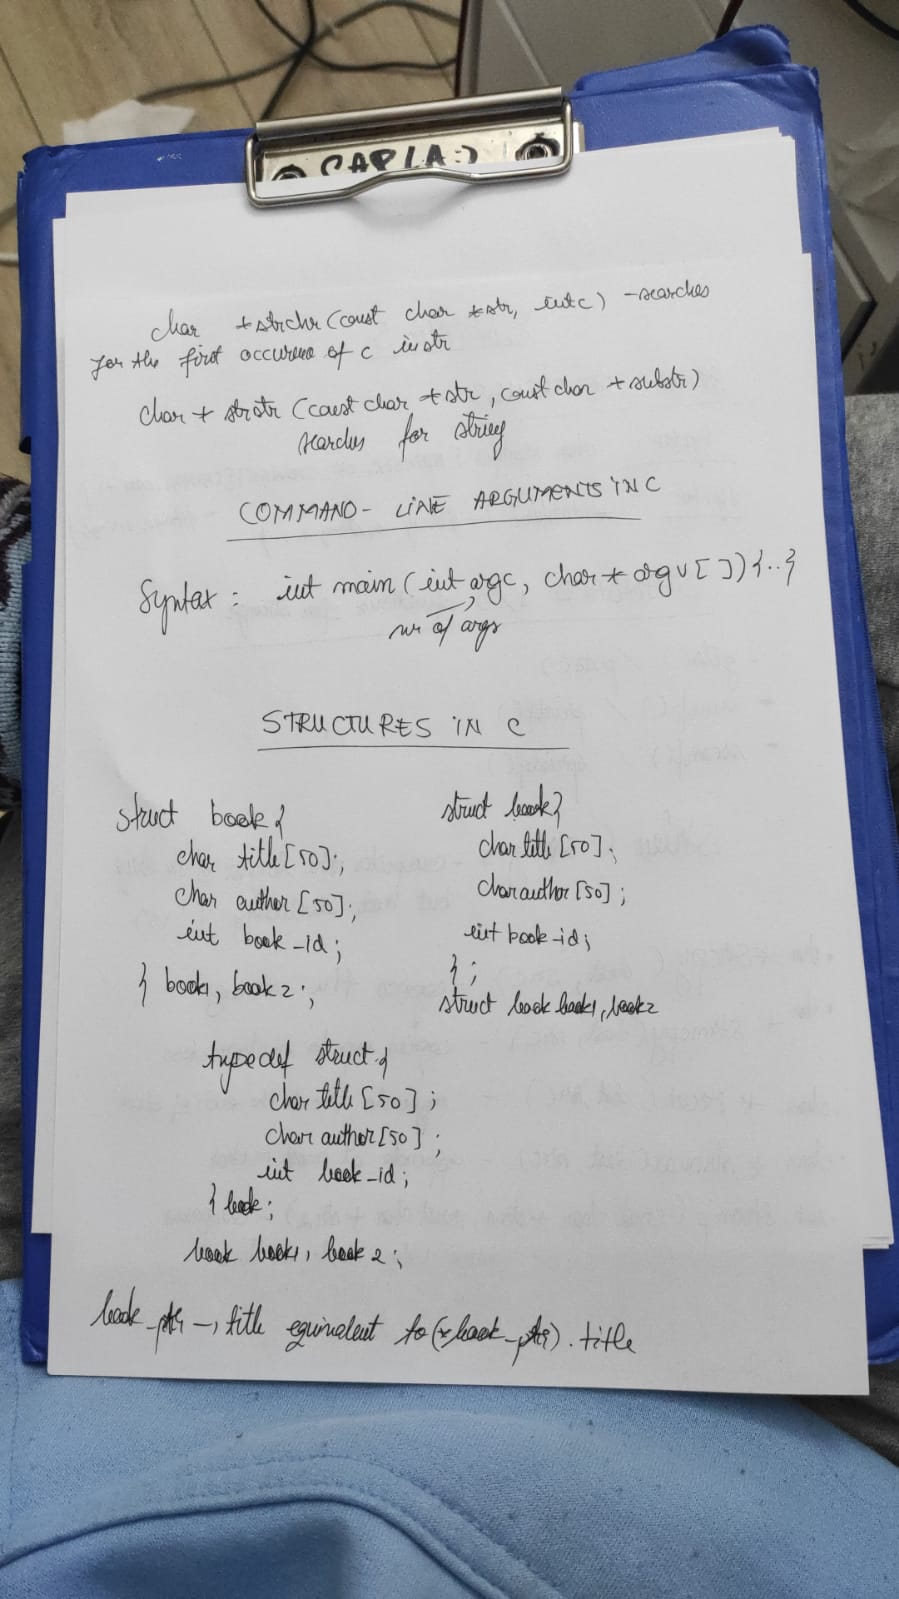 CARLA :)
char *strchr (const char *str, int c) - searches
for the first occurence of c in str
char * strstr (const char * str, const char * substr)
searches for string
COMMAND - LINE ARGUMENTS IN C
Syntax : int main (int argc, char * argv[]) {..}
nr of args
STRUCTURES IN C
struct book {
char title [50];
char author [50];
int book_id;
} book1, book2;
struct book {
char title [50];
char author [50];
int book_id;
};
struct book book1, book2
typedef struct {
char title [50];
char author [50];
int book_id;
} book;
book book1, book2;
book_ptr -> title equivalent to (*book_ptr).title